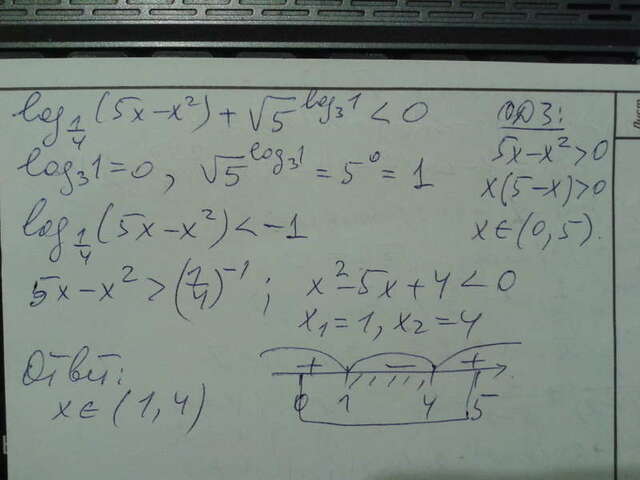 log_{1/4}(5x-x²)+√5^{log₃1}<0
ОДЗ:
5x-x²>0
x(5-x)>0
x∈(0,5).
log₃1=0, √5^{log₃1}=5⁰=1
log_{1/4}(5x-x²)<-1
5x-x²>(1/4)⁻¹; x²-5x+4<0
x₁=1, x₂=4
+ - +
0 1 4 5
Ответ:
x∈(1,4)